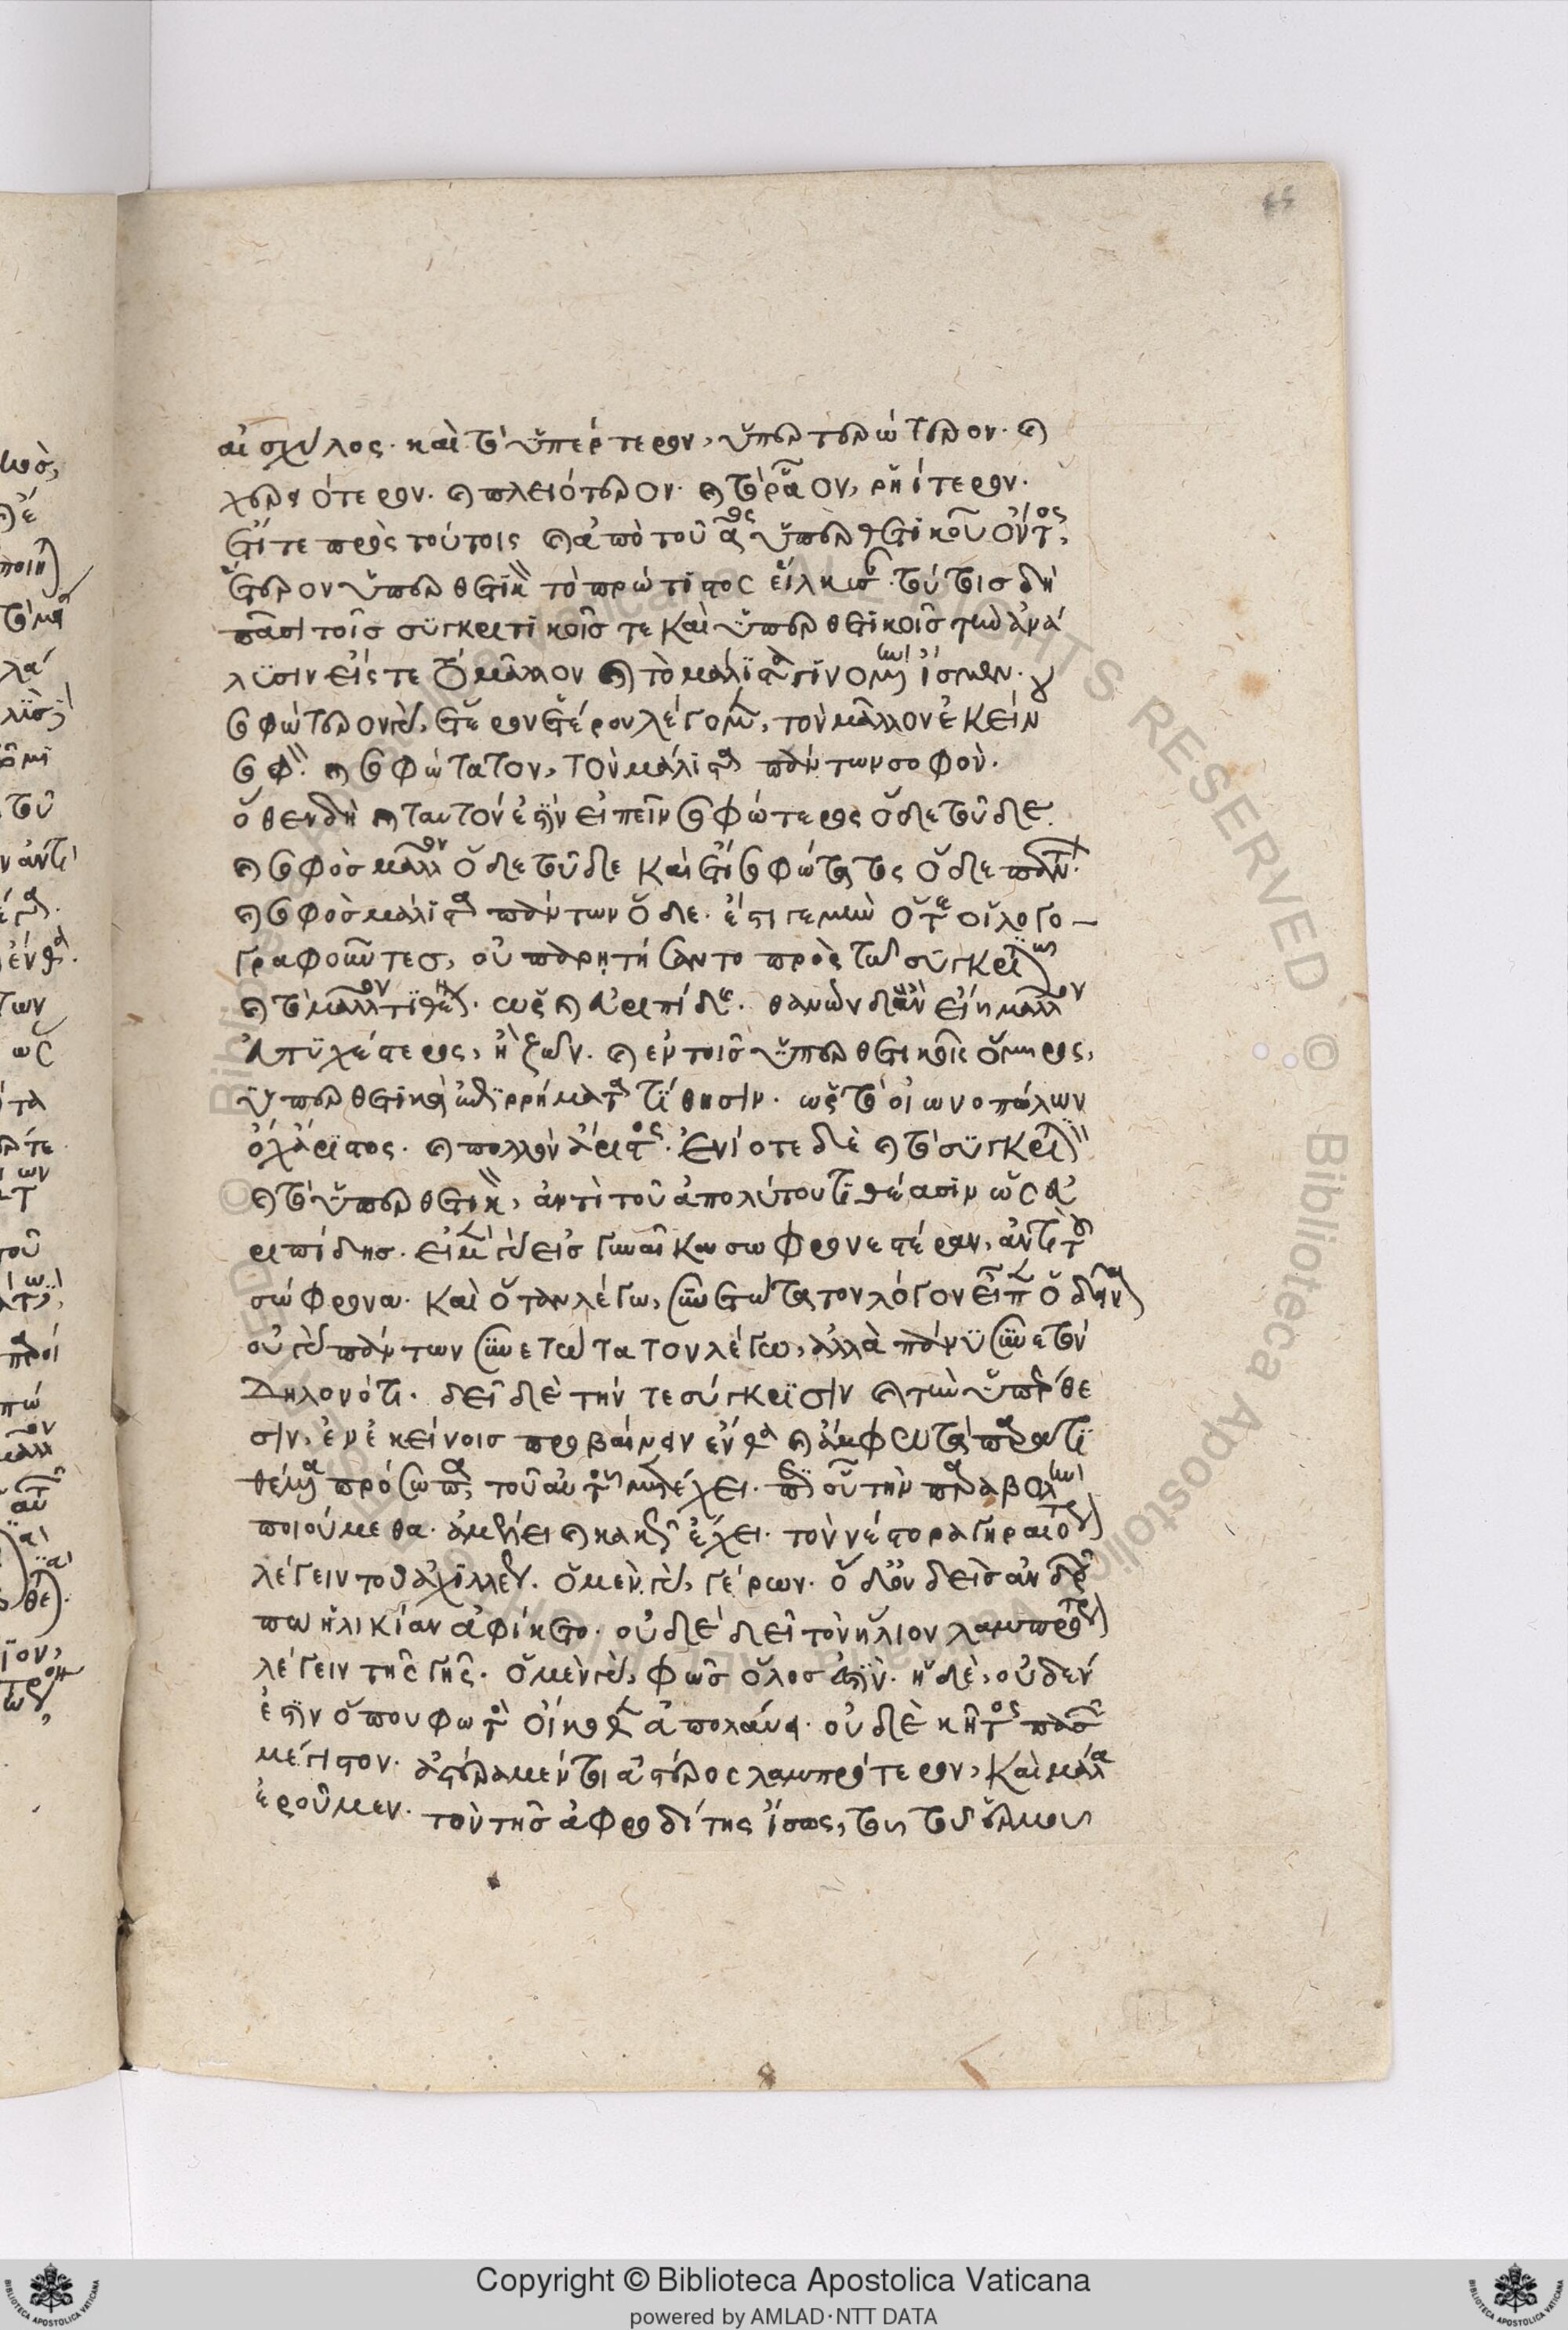 αἰσχύλος· καὶ τὸ ὑπέρτερον, ὑπερτερώτερον· καὶ
χειρότερον· καὶ πλειότερον· καὶ τὸ ῥᾷον, ῥηΐτερον·
ἔτι τε πρὸς τούτοις καὶ ἀπὸ τοῦ ὑπερθετικοῦ ὄντος,
ἕτερον ὑπερθετικὸν τὸ πρώτιστος εἵλκυσται· τούτοις δὴ
πᾶσι τοῖς συγκριτικοῖς τε καὶ ὑπερθετικοῖς τὴν ἀνά
λυσιν εἴς τε τὸ μᾶλλον καὶ τὸ μάλιστα γινομένην ἴσμεν·
σοφώτερον γὰρ, ἕτερον ἑτέρου λέγομεν, τὸν μᾶλλον ἐκείνου
σοφόν· καὶ σοφώτατον, τὸν μάλιστα πάντων σοφόν·
ὅθεν δὴ καὶ ταυτόν ἐστιν εἰπεῖν σοφώτερος ὅδε τοῦδε·
καὶ σοφὸς μᾶλλον ὅδε τοῦδε καὶ ἔτι σοφώτατος ὅδε πάντων·
καὶ σοφὸς μάλιστα πάντων ὅδε· ἔστι γε μὴν ὅτε οἱ λογο-
γραφοῦντες, οὐ παρῃτήσαντο πρὸς τῷ συγκριτικῷ
καὶ τὸ μᾶλλον τιθέναι· ὡς καὶ εὐριπίδης· θανὼν δ' ἂν εἴη μᾶλλον
εὐτυχέστερος, ἢ ζῶν· καὶ ἐν τοῖς ὑπερθετικοῖς ὅμηρος,
ὑπερθετικὰ ἐπιρρήματα τίθησιν· ὡς τὸ οἰωνοπόλων
ὄχ' ἄριστος· καὶ πολλὸν ἄριστος· ἐνίοτε δὲ καὶ τὸ συγκριτικὸν
καὶ τὸ ὑπερθετικὸν, ἀντὶ τοῦ ἀπολύτου τιθέασιν ὡς εὐ
ριπίδης· εἰ μὲν γὰρ εἰς γυναῖκα σωφρονεστέραν, ἀντὶ τοῦ
σώφρονα· καὶ ὅταν λέγω, συνετώτατον λόγον εἶπεν ὁ δεῖνα
οὐ γὰρ πάντων συνετώτατον λέγω, ἀλλὰ πάνυ συνετόν
δηλονότι· δεῖ δὲ τήν τε σύγκρισιν καὶ τὴν ὑπέρθε
σιν, ἐν ἐκείνοις προβαίνειν ἔνθα καὶ ἄμφω τὰ παρατι
θέμενα πρόσωπα, τοῦ αὐτοῦ μετέχει· περὶ οὗ τὴν παραβολὴν
ποιούμεθα· ἀμέλει καὶ κακῶς ἔχει· τὸν νέστορα γηραιότερον
λέγειν τοῦ ἀχιλλέως· ὁ μὲν γὰρ, γέρων· ὁ δ' οὐδεὶς ἀνδρ
πω ἡλικίαν ἀφίκετο· οὐδὲ δεῖ τὸν ἥλιον λαμπρότερον
λέγειν τῆς γῆς· ὁ μὲν γὰρ, φῶς ὅλος ἐστίν· ἡ δὲ, οὐδέν
ἐστιν ὅπου φωτὸς οἴκοθεν ἀπολαύει· οὐδὲ κῆτος πᾶσι
μέγιστον· ἀστέρα μέντοι ἀστέρος λαμπρότερον, καὶ μάλα
ἐροῦμεν· τὸν τῆς ἀφροδίτης ἴσως, τοῦ τοῦ ἑρμοῦ